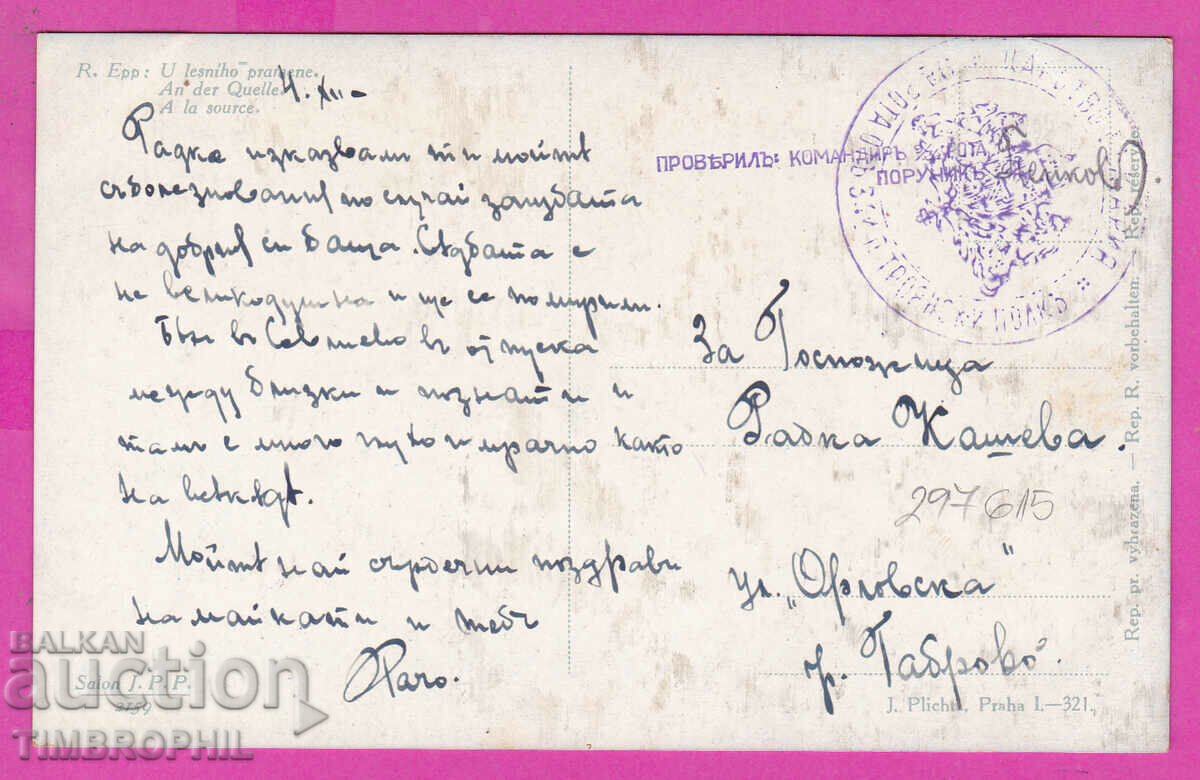 R. Epp: U lesního pramene.
An der Quelle.
A la source.
4. XII –
Радке изказвам ти мойтѣ
съболезнования по случай загубата
на добрия си баща. Съдбата е
не великодушна и ще се помирим.
Бях въ Севлиево въ отпуска
между близки и познати и
тамъ е много глухо и мрачно както
на всѣкѫдѣ.
Мойтѣ най сърдечни поздрави
на майка ти и тебѣ
Рачо.
Salon J. P. P.
2189
ПРОВѢРИЛЪ: КОМАНДИРЪ РОТА
ПОРУЧИКЪ
ПОЛКЪ
За Госпожица
Радка Кашева.
297615
ул. „Орловска"
гр. Габрово.
J. Plichta, Praha I.—321.
Rep. pr. vyhrazena. — Rep. R. vorbehalten. — Rep. réservée.
BALKAN
auction
TIMBROPHIL